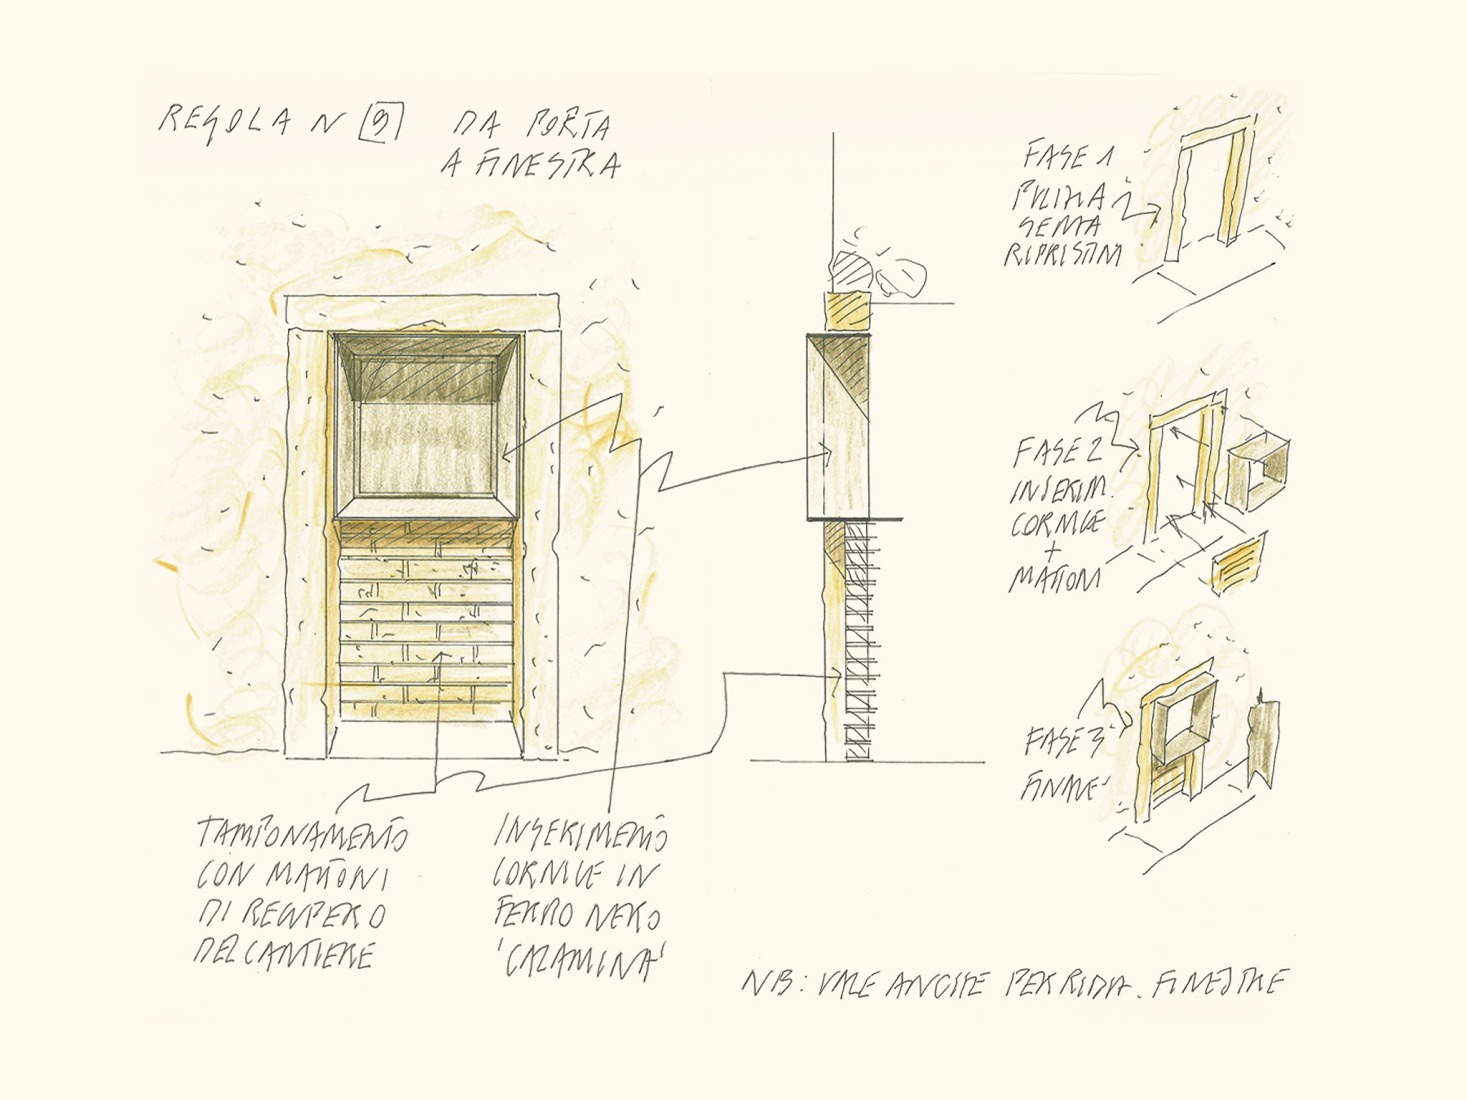 REGOLA N 9 DA PORTA
A FINESTRA
FASE 1
PULIZIA
SENZA
RIPRISTINI
FASE 2
INSERIM.
CORNICE
+
MATTONI
FASE 3
FINALE
TAMPONAMENTO
CON MATTONI
DI RECUPERO
DEL CANTIERE
INSERIMENTO
CORNICE IN
FERRO NERO
'CALAMINA'
NB: VALE ANCHE PER RIDIM. FINESTRE